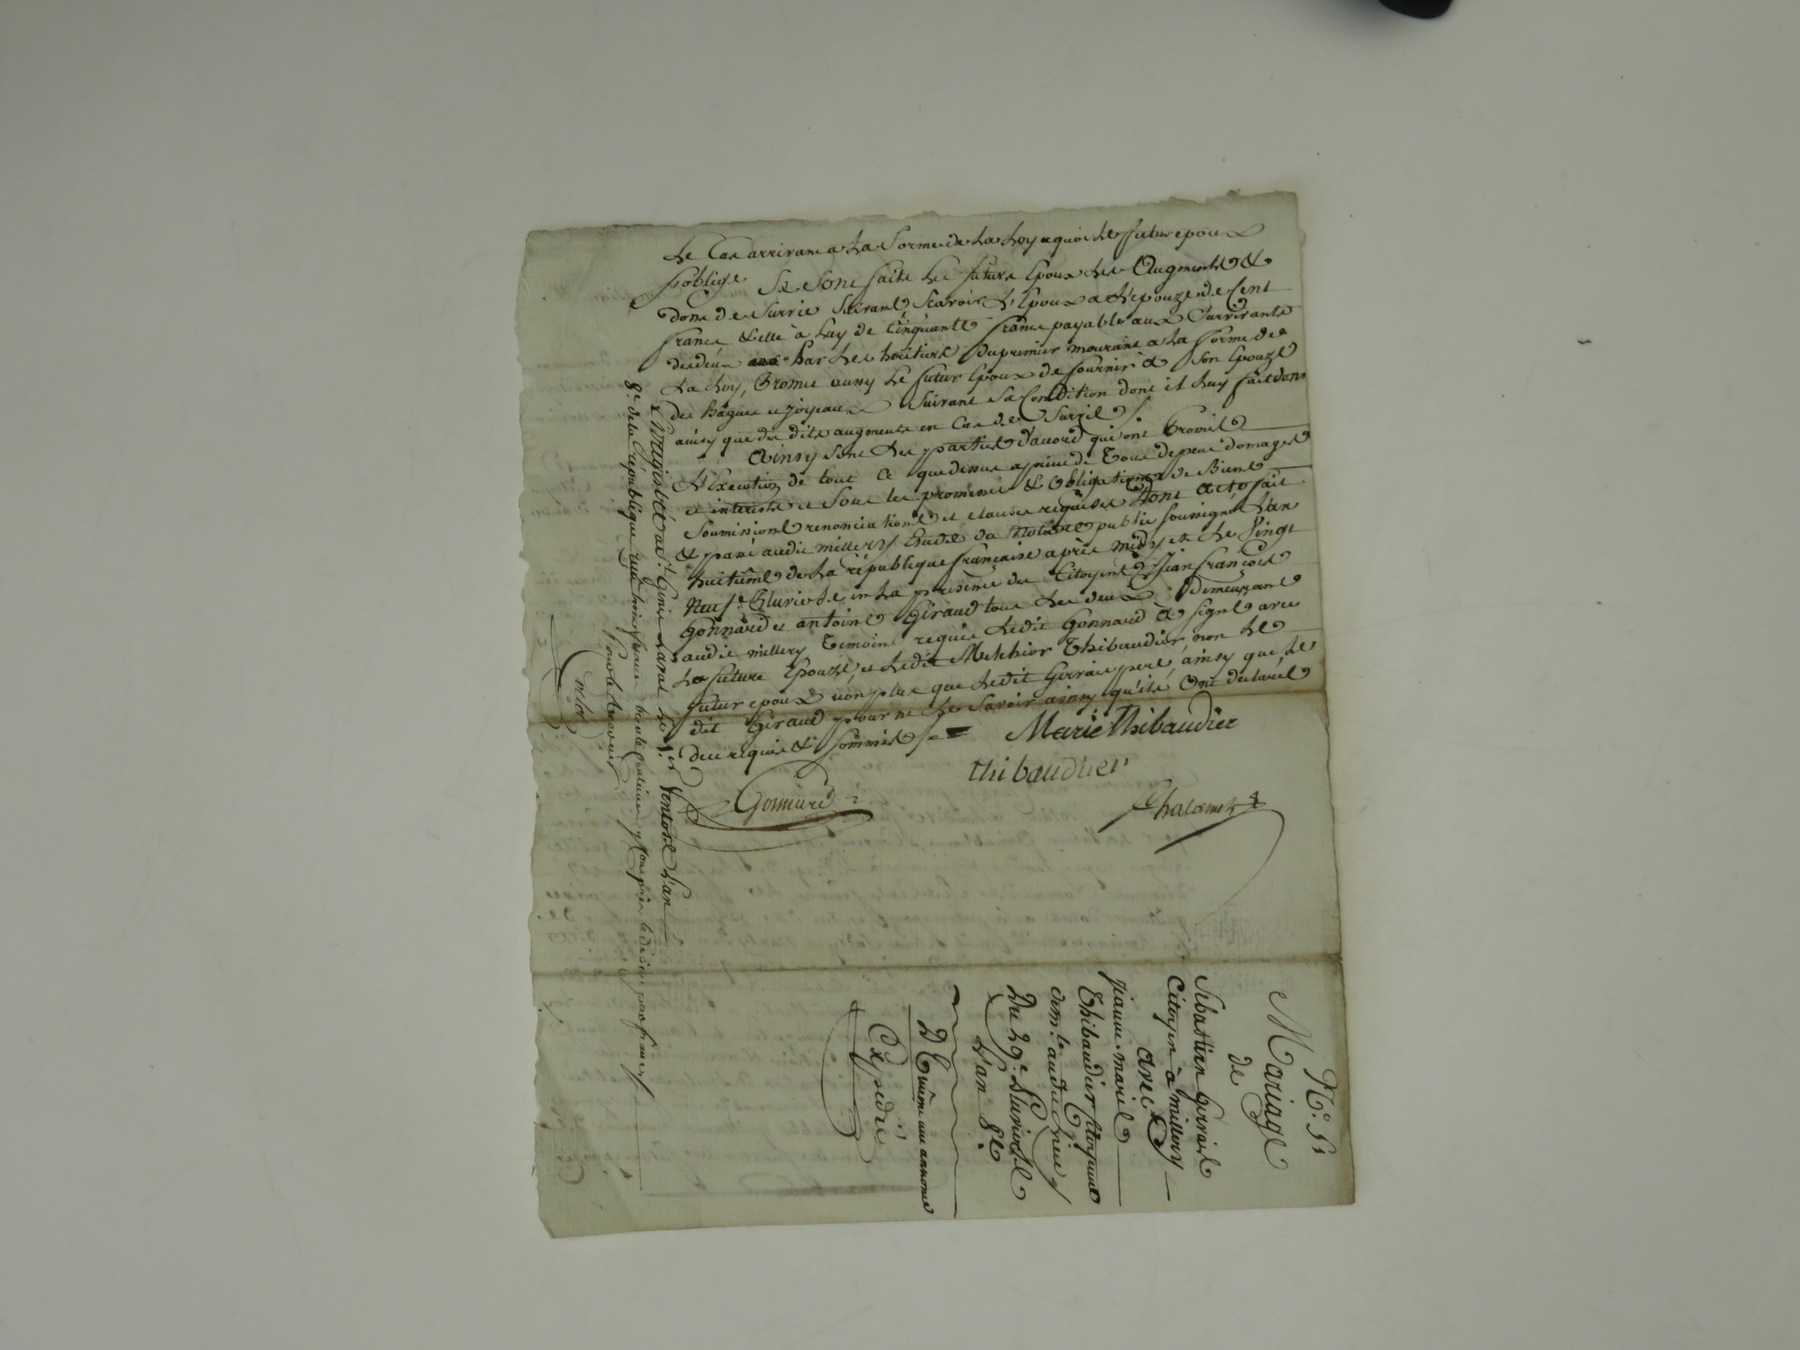 Le Cas arrivant a La forme de La Loy a quoi Le futur epoux
s'oblige Se Sont faits Les futurs Epoux Les Augments &
dons de Survie Suivants Scavoir L'Epoux a L'epouze de Cent
francs & elle à Luy de Cinquante francs payable aux Survivants
des deux par Les hoëtiers du premier mourant a La forme de
La Loy, Promet aussy Le futur Epoux de fournir a Son Epouze
des Bagues et joyeaux Suivant Sa Condition dont il Luy fait dons
ainsy que des dits augments en Cas de Survie /.
Ainsy Sont Les parties d'acord qui ont Promis
L'Execution de tout Ce que dessus a peine de Tous depens domages
et interests et Sous les promesses & obligations de Biens
Soumissions renonciations et clauses requises Dont acte fait
& passé audit millery Etude du Notaire public soussigné L'an
huitieme de La république francaise après midy et Le Vingt
Neuf Pluviose en La presence des Citoyens Jean francois
Gonnard et antoine Giraud tous Les deux Demeurant
audit millery Temoins requis Ledit Gonnard a Signé avec
La future Epouze, et Ledit Melchior Thibaudier non Le
futur epoux non plus que Ledit Gervais pere, ainsy que Le
dit Giraud pour ne Le Savoir ainsy qu'ils ont declaré
de ce requis & sommés /.
Marie Thibaudier
thibaudier
Gonnard
Chalamet
Enregistré a St. Genis Laval Le 1er Ventose L'an
8e. de la république
N°. 51
Mariage
de
Sebastien Gervais
Citoyen à millery
avec
jeanne-marie
Thibaudier Citoyenne
dem.te audit Lieu
Du 29e. Pluviose
L'an 8e.
D Euième aux annonces
Expedié